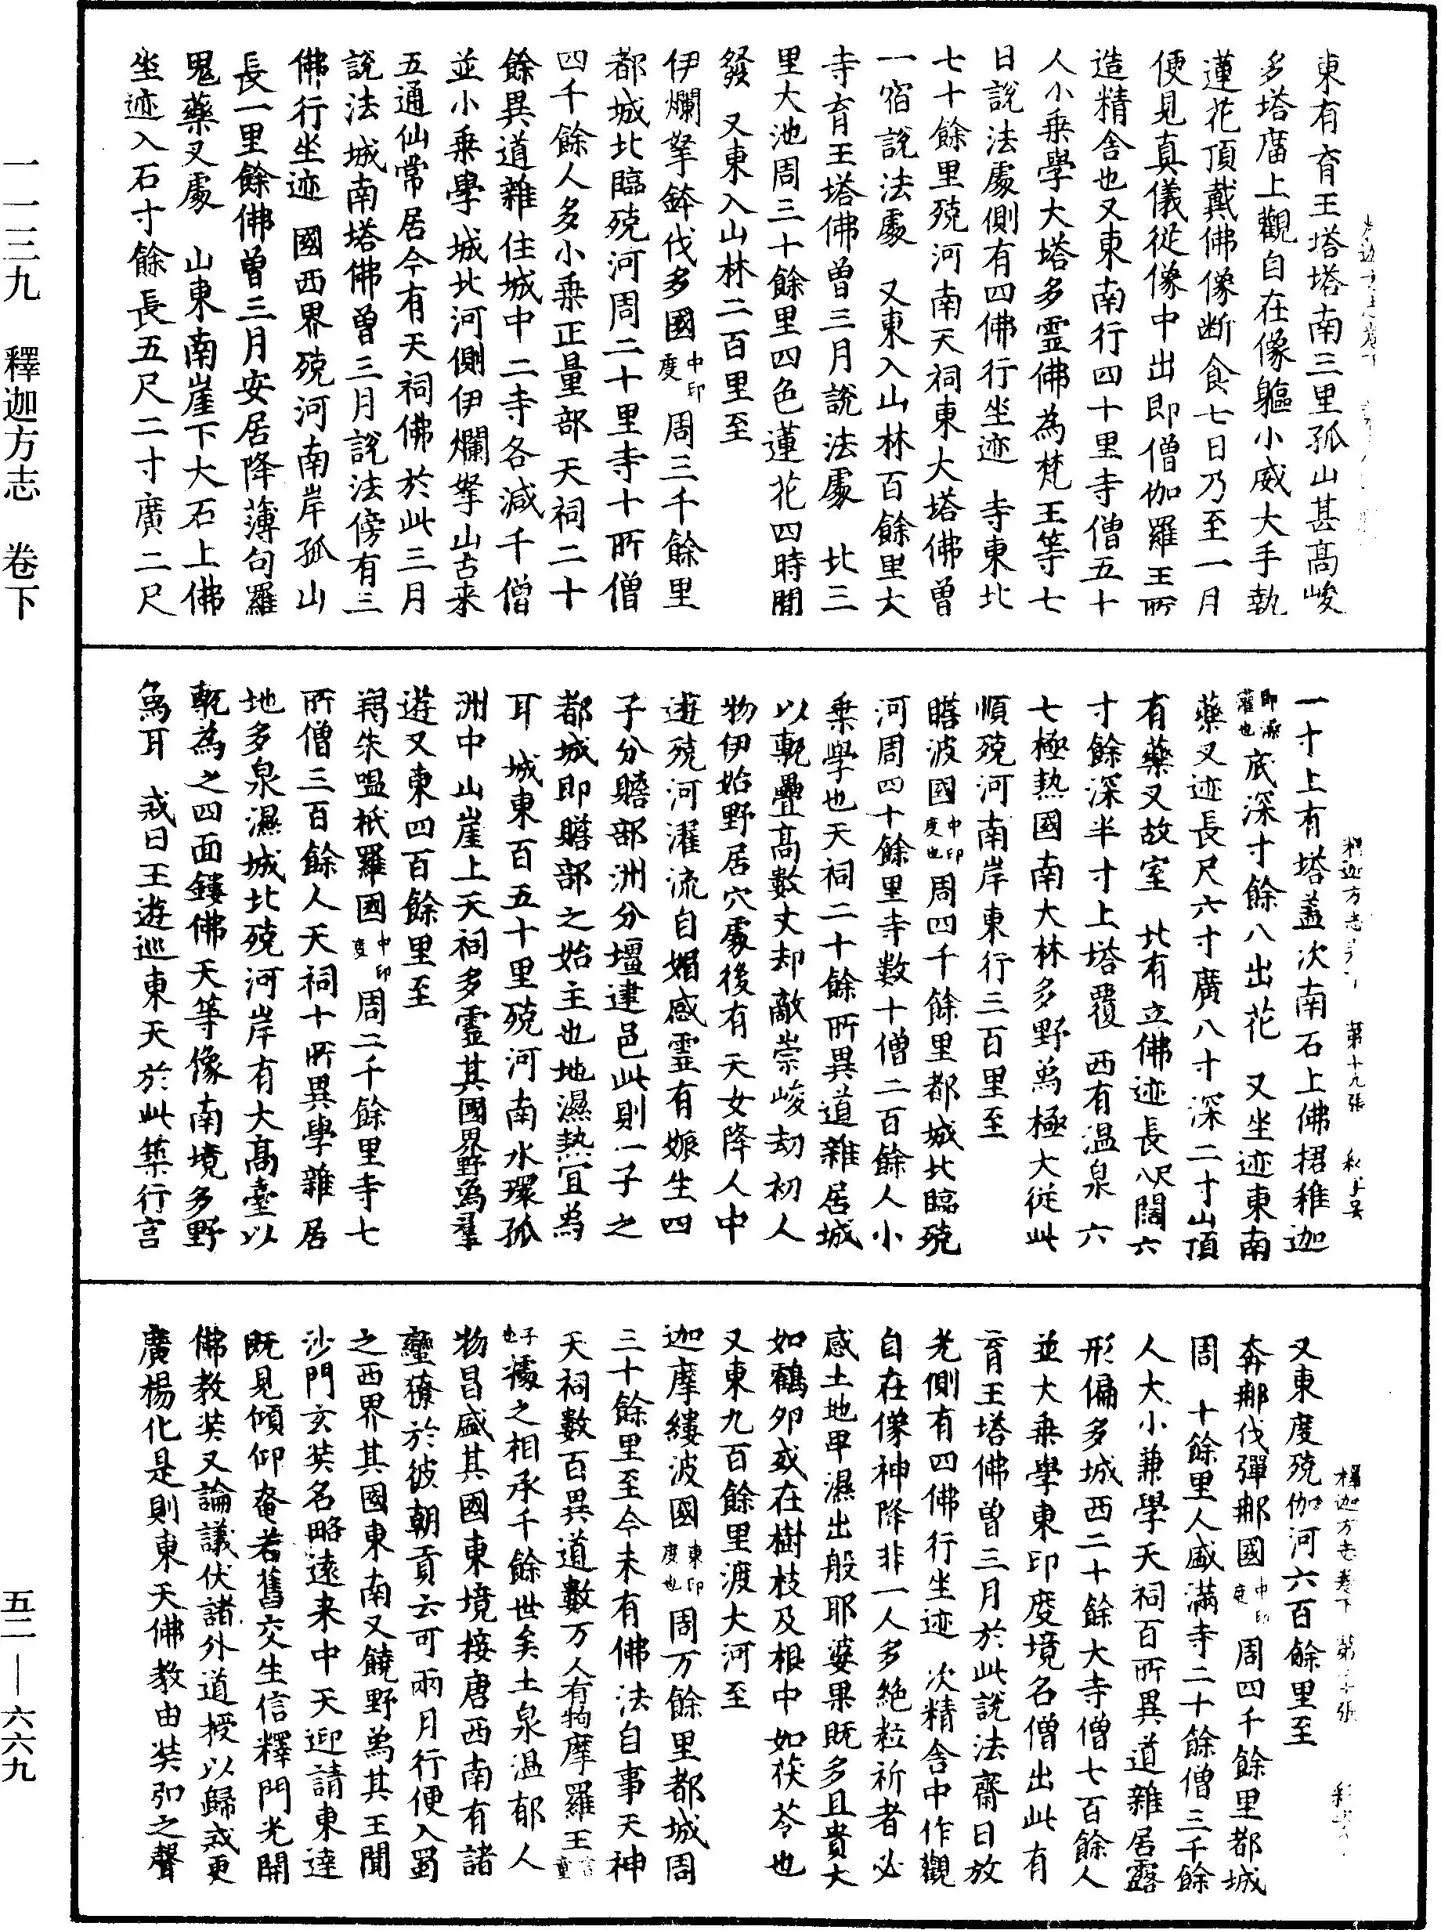 東有育王塔塔南三里孤山甚高峻
多塔庿上觀自在像軀小威大手執
蓮花頂戴佛像断食七日乃至一月
便見真儀從像中出即僧伽羅王所
造精舍也又東南行四十里寺僧五十
人小乗學大塔多靈佛為梵王等七
日說法處側有四佛行坐迹 寺東北
七十餘里殑河南天祠東大塔佛曽
一宿說法處 又東入山林百餘里大
寺育王塔佛曽三月說法處 北三
里大池周三十餘里四色蓮花四時開
發 又東入山林二百里至
伊爛拏鉢伐多國中印度周三千餘里
都城北臨殑河周二十里寺十所僧
四千餘人多小乗正量部天祠二十
餘異道雜住城中二寺各減千僧
並小乗學城北河側伊爛拏山古来
五通仙常居今有天祠佛於此三月
說法城南塔佛曽三月說法傍有三
佛行坐迹 國西界殑河南岸孤山
長一里餘佛曽三月安居降薄句羅
鬼藥叉處 山東南崖下大石上佛
坐迹入石寸餘長五尺二寸廣二尺
釋迦方志卷下 第十九張
一寸上有塔盖次南石上佛捃稚迦
即澡灌也底深寸餘八出花 又坐迹東南
藥叉迹長尺六寸廣八寸深二寸山頂
有藥叉故室 北有立佛迹長八尺闊六
寸餘深半寸上塔覆 西有温泉六
七極熱國南大林多野為極大從此
順殑河南岸東行三百里至
瞻波國中印度也周四千餘里都城北臨殑
河周四十餘里寺數十僧二百餘人小
乗學也天祠二十餘所異道雜居城
以甎疊高數丈却敵崇峻劫初人
物伊始野居穴處後有天女降人中
遊殑河濯流自媚感靈有娠生四
子分贍部洲分壃建邑此則一子之
都城即贍部之始主也地濕熱宜為
耳 城東百五十里殑河南水環孤
洲中山崖上天祠多靈其國界野為羣
遊又東四百餘里至
羯朱嗢祇羅國中印度周二千餘里寺七
所僧三百餘人天祠十所異學雜居
地多泉濕城北殑河岸有大高臺以
甎為之四面鏤佛天等像南境多野
為耳 戒日王遊巡東天於此築行言
釋迦方志卷下 第二十張
又東度殑伽河六百餘里至
奔那伐彈那國中印度周四千餘里都城
周 十餘里人盛滿寺二十餘僧三千餘
人大小兼學天祠百所異道雜居露
形偏多城西二十餘大寺僧七百餘人
並大乗學東印度境名僧出此有
育王塔佛曽三月於此說法齋日放
光側有四佛行坐迹 次精舍中作觀
自在像神降非一人多絶粒祈者必
感土地卑濕出般耶婆果既多且貴大
如鸖夘或在樹枝及根中如茯苓也
又東九百餘里渡大河至
迦摩縷波國東印度也周万餘里都城周
三十餘里至今未有佛法自事天神
天祠數百異道數万人有拘摩羅王言童
子也㩀之相承千餘世矣土泉温郁人
物昌盛其國東境接唐西南有諸
蠻獠於彼朝貢云可兩月行便入蜀
之西界其國東南又饒野為其王聞
沙門玄奘名略遠来中天迎請東達
既見傾仰奄若舊交生信釋門光開
佛教奘又論議伏諸外道授以歸戒更
廣楊化是則東天佛教由奘弘之聲
一一三九 釋迦方志 卷下
五二—六六九